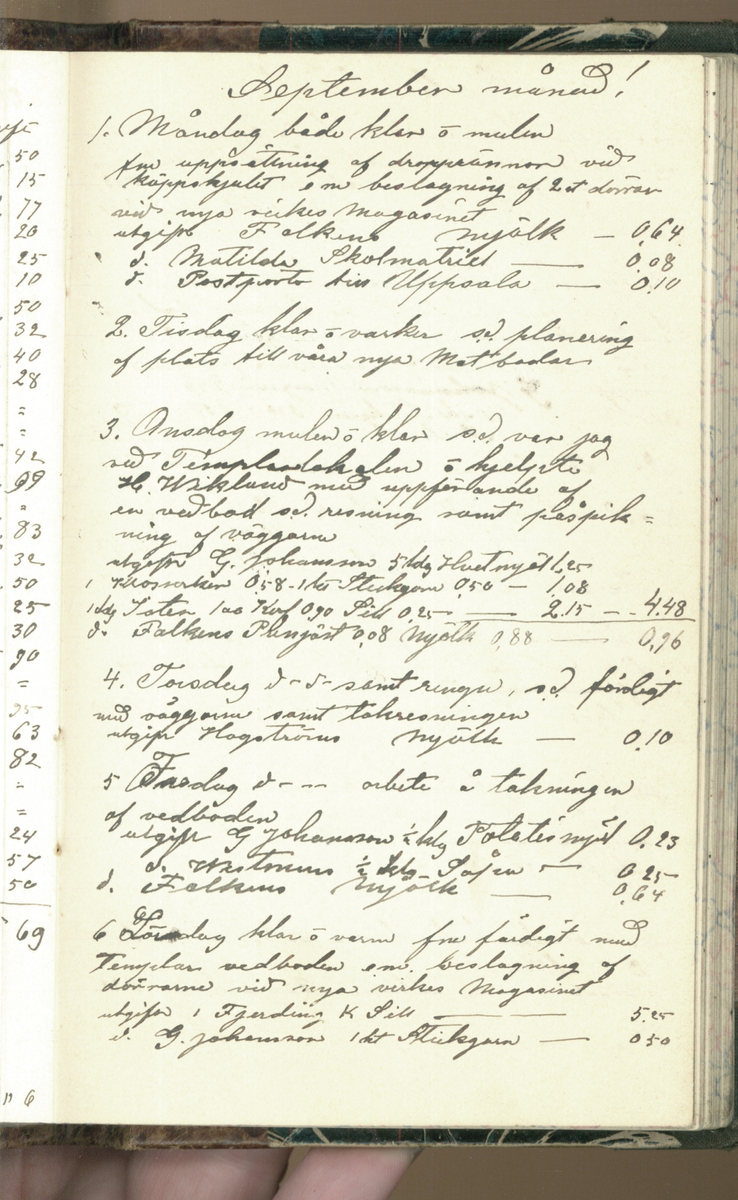 September månad!
1. Måndag både klar o mulen
fm uppsättning af dropprännor vid
käppskjulet em beslagning af 2 st dörrar
vid nya virkes Magasinet
utgift Falkens Mjölk — 0,64
d. Matilda Skolmatriel — 0,08
d. Postporto till Uppsala — 0,10
2. Tisdag klar o vacker s.d. planering
af plats till våra nya Matbodar
3. Onsdag mulen o klar s.d. var jag
vid Templarlokalen o hjelpte
H. Wiklund med uppförande af
en vedbod s.d. resning samt påspik=
ning af väggarna
utgift G. Johansson 5 kg Hvetmjöl 1,25
1 0,58 - 1 kt Stickgarn 0,50 — 1,08
1 kg Soter 1,00 Korf 0,90 Sill 0,25 — 2.15 — 4.48
d. Falkens Presjäst 0,08 Mjölk 0,88 — 0,96
4. Torsdag d - d - samt regn, s.d. färdigt
med väggarna samt takresningen
utgift Hagströms Mjölk — 0,10
5 Fredag d - - - arbete å takningen
af vedboden
utgift G Johansson ½ kg Potatismjöl 0,23
d. Westmans ½ kg Såpa — 0,25
d. Falkens Mjölk — 0,64
6 Lördag klar o varm fm färdigt med
Templar vedboden em. beslagning af
dörrarne vid nya virkes Magasinet
utgifter 1 Fjerding K Sill — 5.25
d. G. Johansson 1 kt Stickgarn — 0 50
50
15
77
20
25
10
50
32
40
28
"
"
42
99
"
83
32
50
25
30
90
"
95
63
82
"
"
24
57
50
69
n 6